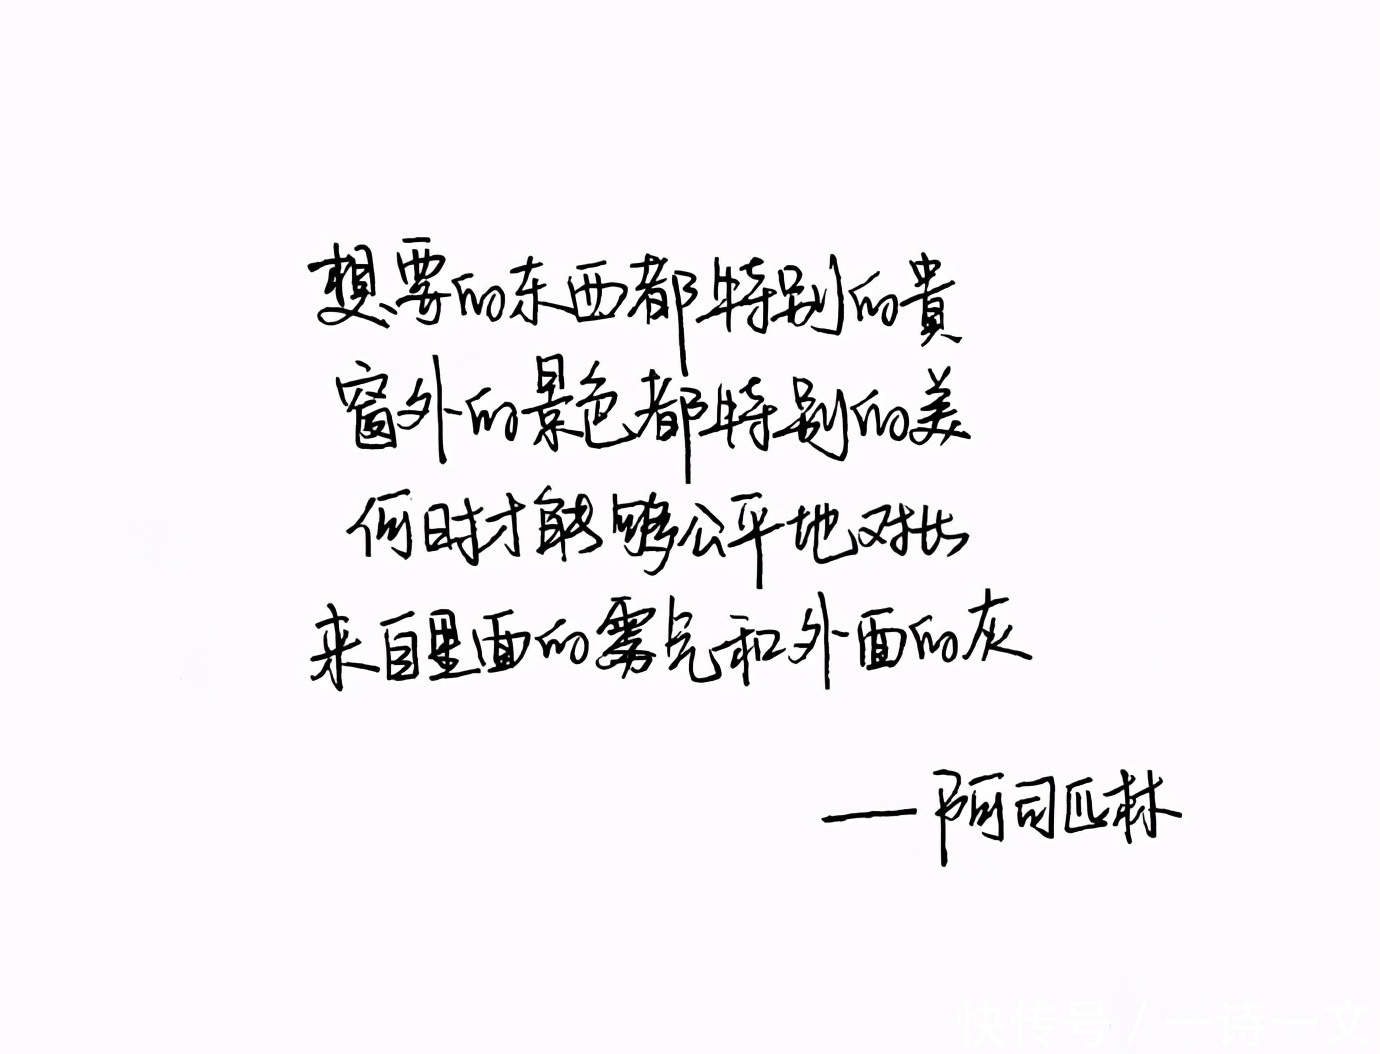 想要的东西都特别的貴
窗外的景色都特别的美
何时才能够公平地对比
来自里面的雾气和外面的灰
——阿司匹林
快传号 / 一诗一文